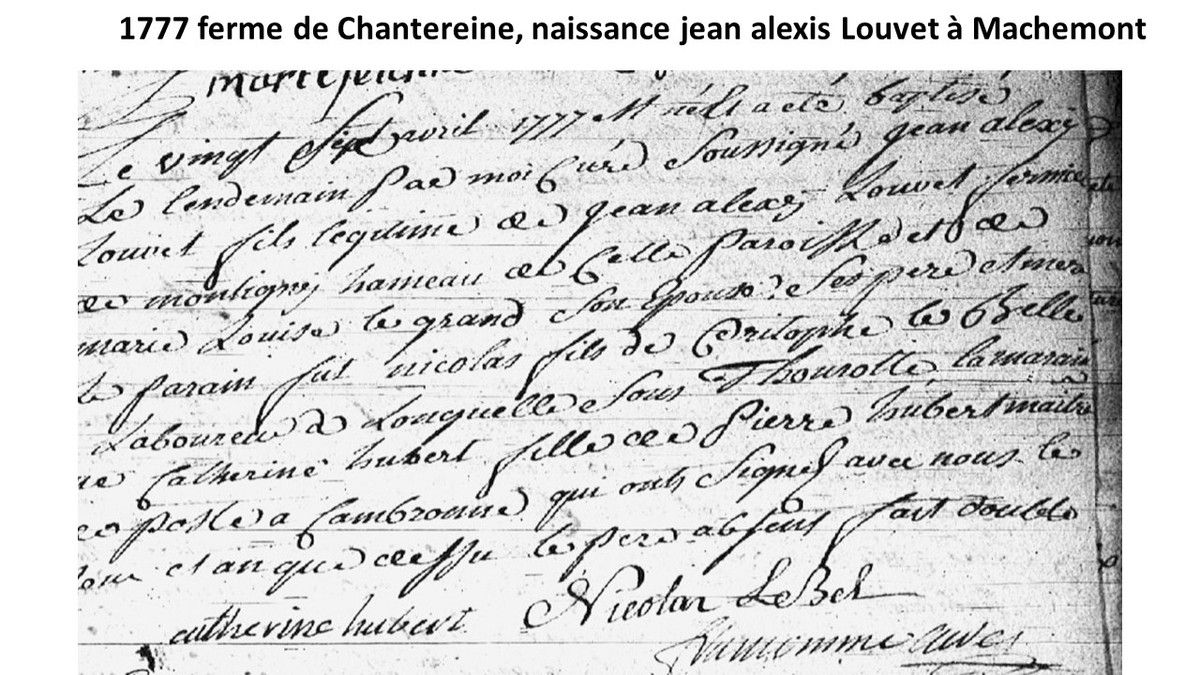 1777 ferme de Chantereine, naissance jean alexis Louvet à Machemont
Le vingt sept avril 1777 est né et a eté baptisé
Le lendemain par moi Curé Soussigné jean alexis
Louvet fils legitime de jean alexis Louvet fermie
de montigny hameau de Cette Paroisse et de
marie Louise le grand son Epouse. Ses pere et mere
le parain fut nicolas fils de Cristophe le Belle
Laboureur a Longuelle Sous Thourotte, la marain
ne Catherine hubert fille de Pierre hubert maitre
de poste a Cambronne qui onts Signes avec nous le
jour et an que dessu le pere absent fait double
catherine hubert Nicolas LeBel